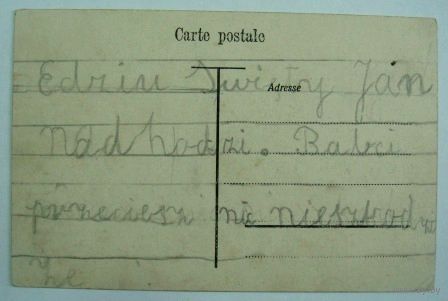 Carte postale
Adresse
Edziu Święty Jan
nadhodzi. Babci
przeciesz nic nieszkodzi
że